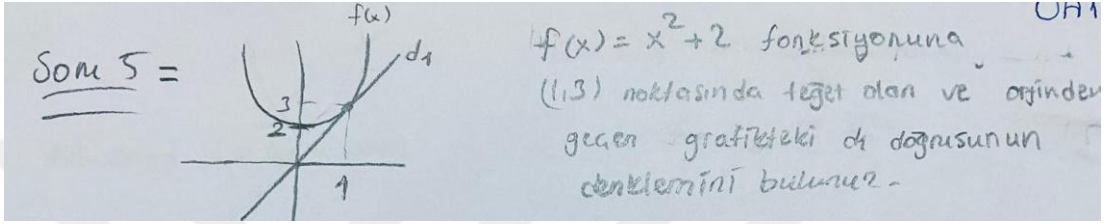 Soru 5 =
f(x)
d1
3
2
1
f(x) = x² + 2 fonksiyonuna
(1,3) noktasında teğet olan ve orjinden
geçen grafikteki d1 doğrusunun
denklemini bulunuz.